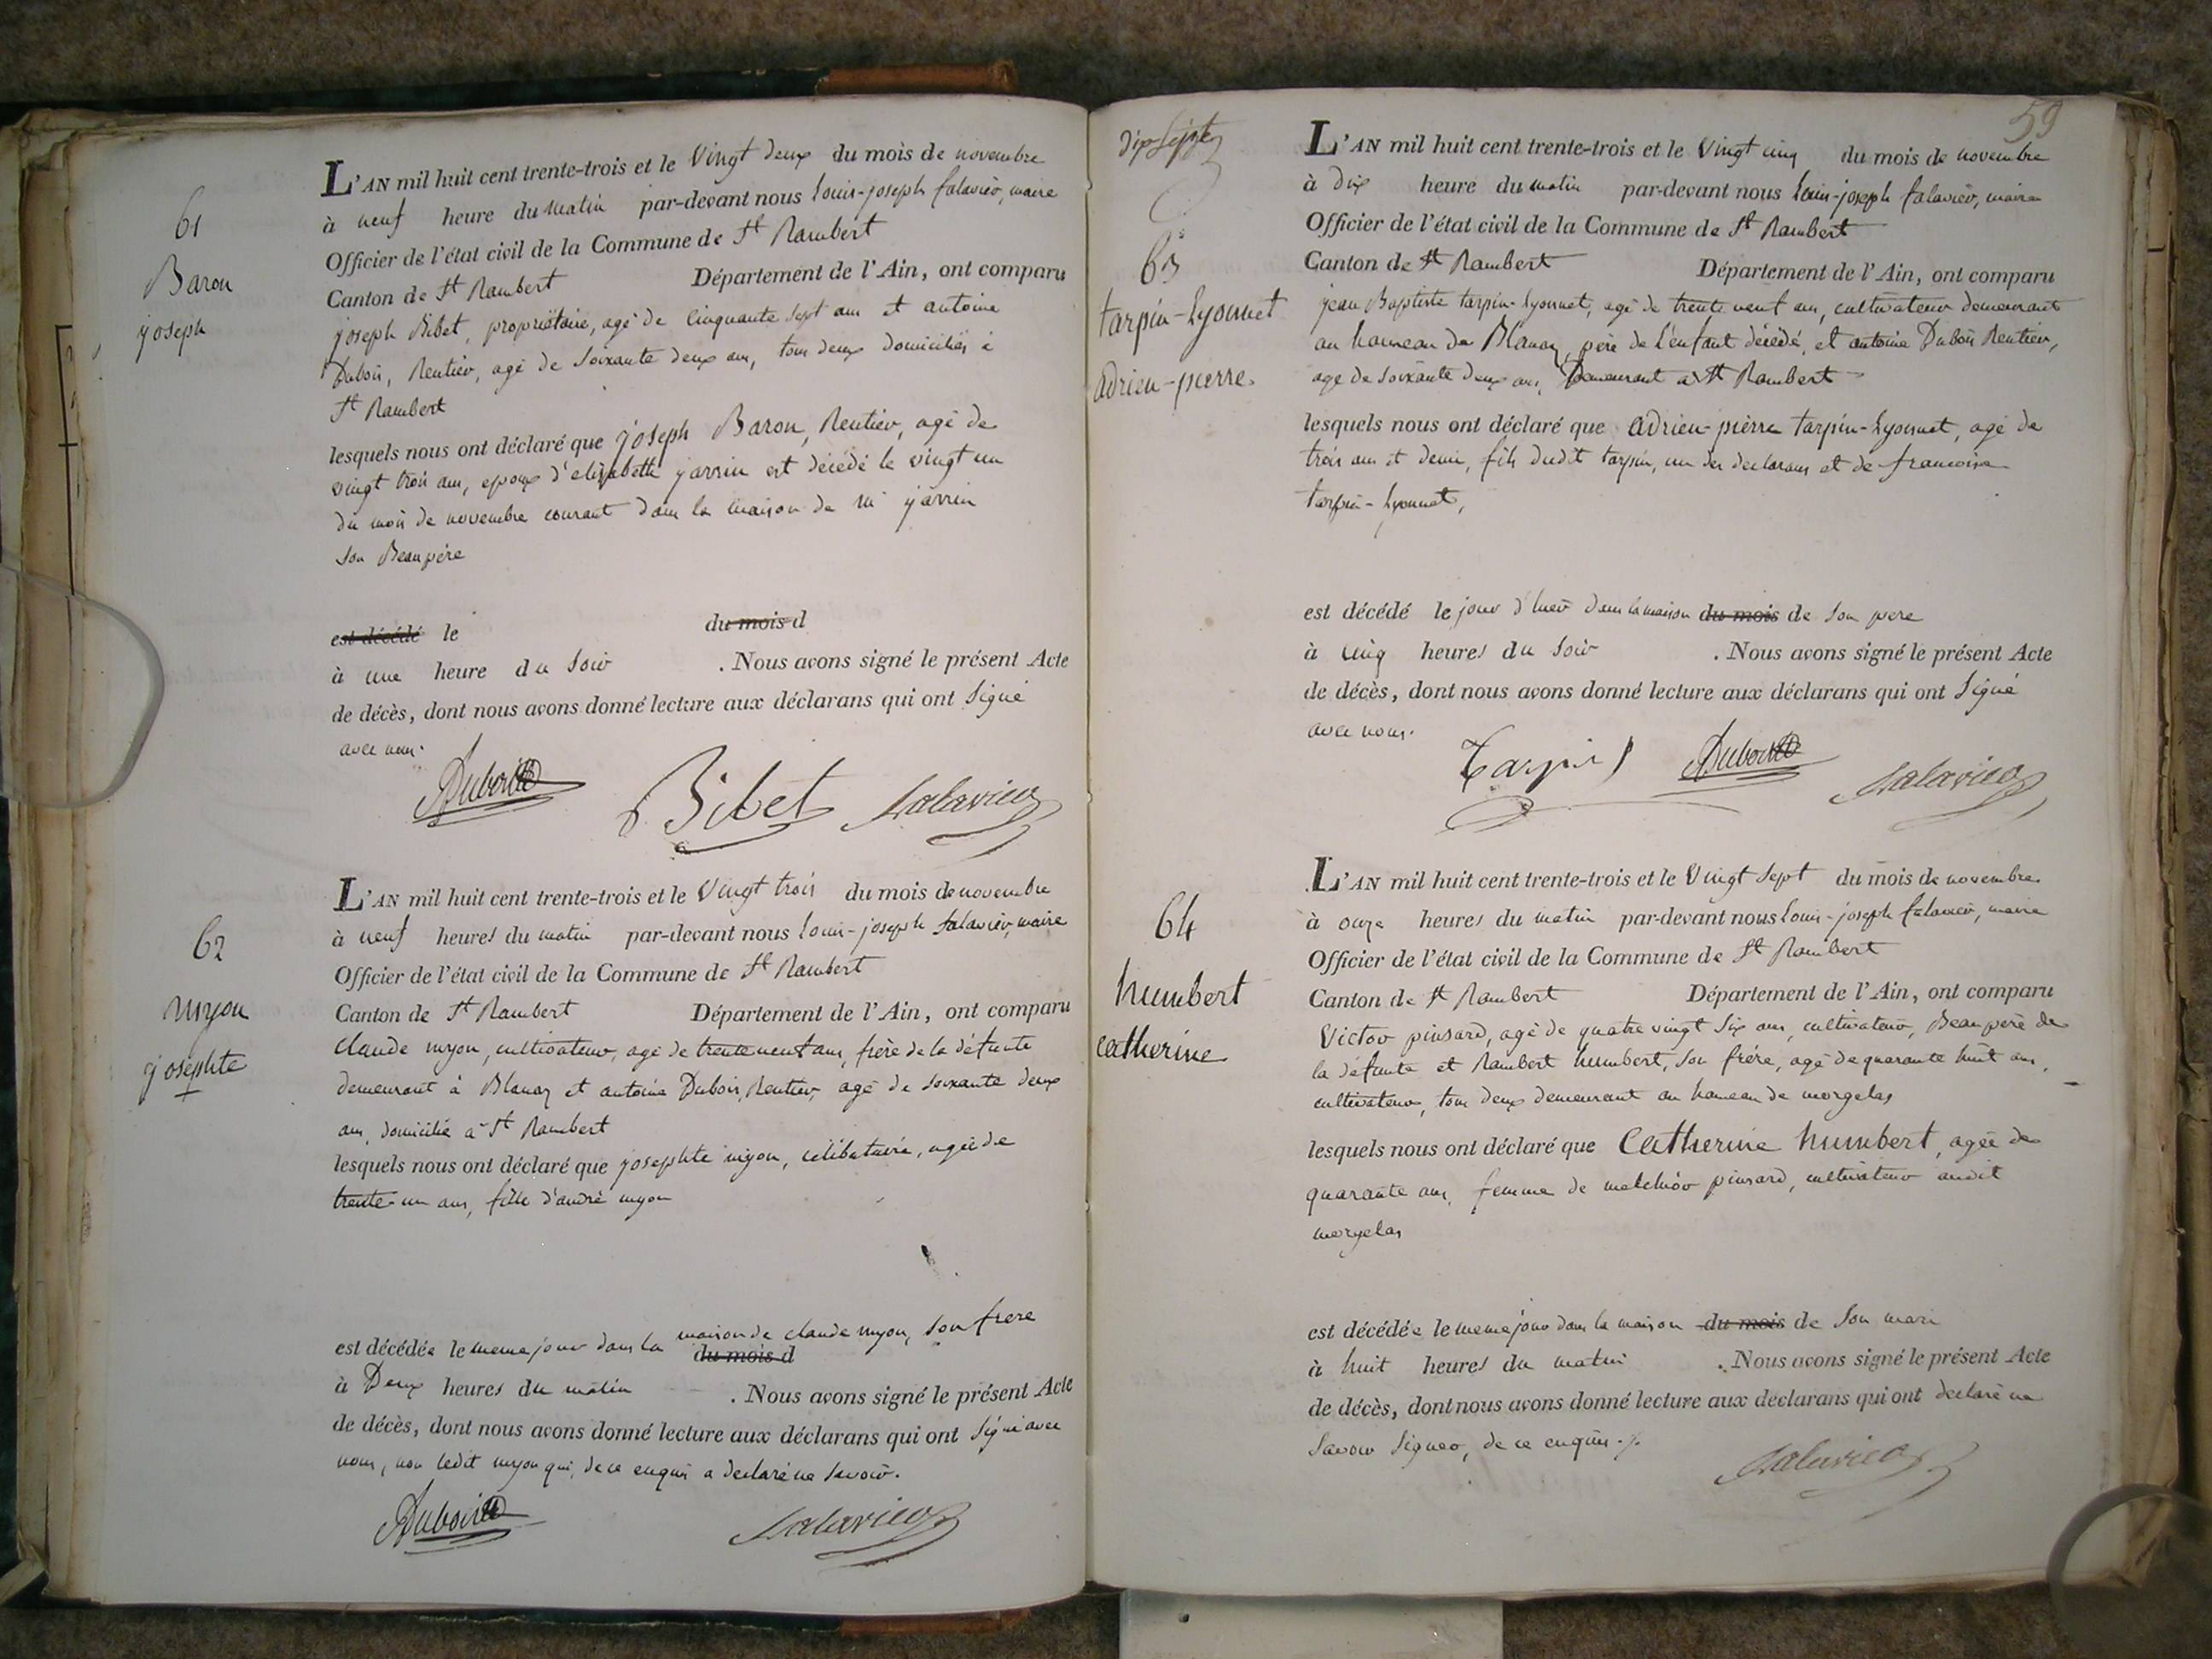 61
Baron
joseph
L'AN mil huit cent trente-trois et le vingt deux du mois de novembre
à neuf heure du matin par-devant nous Louis-joseph falavier, maire
Officier de l'état civil de la Commune de St Rambert
Canton de St Rambert Département de l'Ain, ont comparu
joseph Bibet, propriétaire, agé de cinquante sept ans et antoine
Dubois, Rentier, agé de soixante deux ans, tous deux domiciliés à
St Rambert
lesquels nous ont déclaré que joseph Baron, Rentier, agé de
vingt trois ans, epoux d'elizabeth jarrin est décédé le vingt un
du mois de novembre courant dans la maison de Mr jarrin
son Beaupère
est décédé le du mois d
à une heure du soir . Nous avons signé le présent Acte
de décès, dont nous avons donné lecture aux déclarans qui ont signé
avec nous.
Dubois Bibet falavier
62
myon
josephte
L'AN mil huit cent trente-trois et le vingt trois du mois de novembre
à neuf heures du matin par-devant nous Louis-joseph falavier, maire
Officier de l'état civil de la Commune de St Rambert
Canton de St Rambert Département de l'Ain, ont comparu
claude myon, cultivateur, agé de trente neuf ans, frère de la défunte
demeurant à Blanaz et antoine Dubois, Rentier, agé de soixante deux
ans, domicilié à St Rambert
lesquels nous ont déclaré que josephte myon, célibataire, agée de
trente-un ans, fille d'andré myon
est décédée le meme jour dans la maison de claude myon, son frere
du mois d
à Deux heures du matin . Nous avons signé le présent Acte
de décès, dont nous avons donné lecture aux déclarans qui ont signé avec
nous, non ledit myon qui, de ce enquis a declaré ne savoir.
Dubois falavier
59
dix sept
63
tarpin-Lyonnet
adrien-pierre
L'AN mil huit cent trente-trois et le vingt cinq du mois de novembre
à dix heure du matin par-devant nous Louis-joseph falavier, maire
Officier de l'état civil de la Commune de St Rambert
Canton de St Rambert Département de l'Ain, ont comparu
jean Baptiste tarpin-Lyonnet, agé de trente neuf ans, cultivateur demeurant
au hameau de Blanaz, père de l'enfant décédé, et antoine Dubois Rentier,
age de soixante deux ans, Demeurant à St Rambert
lesquels nous ont déclaré que adrien-pierre tarpin-Lyonnet, agé de
trois ans et demi, fils dudit tarpin, un des declarans et de francoise
tarpin-Lyonnet,
est décédé le jour d'hier dans la maison du mois de son pere
à cinq heures du soir . Nous avons signé le présent Acte
de décès, dont nous avons donné lecture aux déclarans qui ont signé
avec nous.
Tarpin Dubois falavier
64
humbert
catherine
L'AN mil huit cent trente-trois et le vingt sept du mois de novembre
à onze heures du matin par-devant nous Louis-joseph falavier, maire
Officier de l'état civil de la Commune de St Rambert
Canton de St Rambert Département de l'Ain, ont comparu
Victor pinsard, agé de quatre vingt six ans, cultivateur, Beaupère de
la défunte et Rambert humbert, son frére, agé de quarante huit ans,
cultivateur, tous deux demeurant au hameau de morgelas
lesquels nous ont déclaré que Catherine humbert, agée de
quarante ans, femme de melchior pinsard, cultivateur audit
morgelas
est décédée le meme jour dans la maison du mois de son mari
à huit heures du matin . Nous avons signé le présent Acte
de décès, dont nous avons donné lecture aux déclarans qui ont declaré ne
savoir signer, de ce enquis ./.
falavier